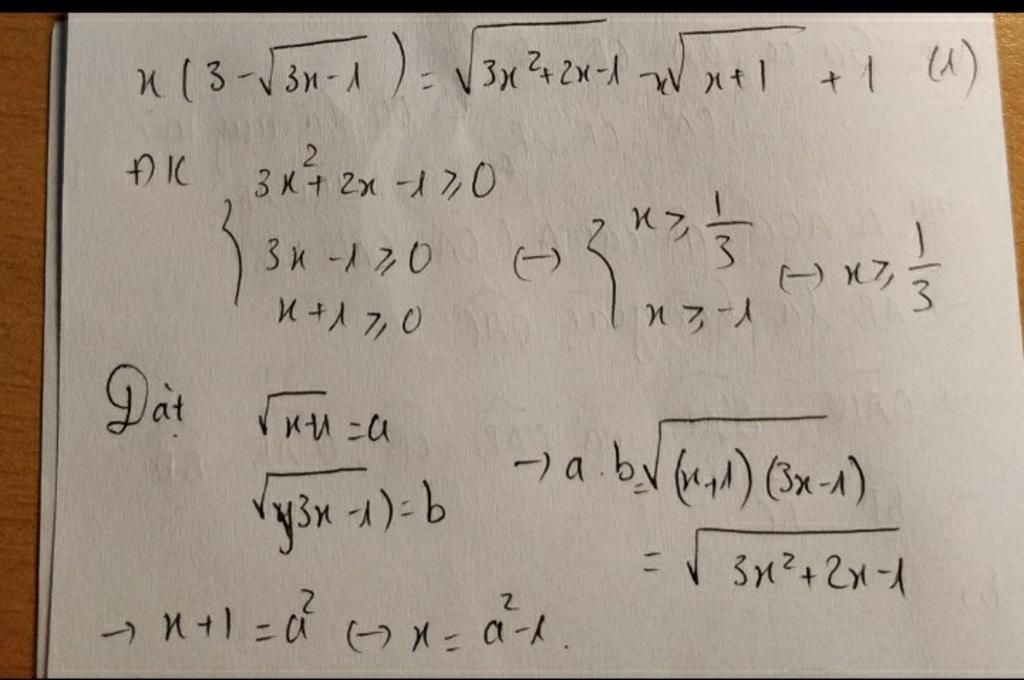 x(3 - √(3x-1)) = √(3x²+2x-1) - x√(x+1) + 1 (1)
ĐK { 3x²+2x-1 ≥ 0
3x-1 ≥ 0 ↔ { x ≥ 1/3 ↔ x ≥ 1/3
x+1 ≥ 0 x ≥ -1
Đặt √(x+1) = a
√(3x-1) = b → a.b = √((x+1)(3x-1))
= √(3x²+2x-1)
→ x+1 = a² ↔ x = a²-1.